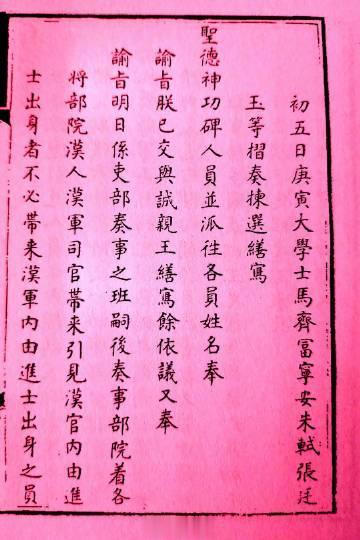 初五日庚寅大學士馬齊富寧安朱軾張廷
玉等摺奏揀選繕寫
聖德神功碑人員並派往各員姓名奉
諭旨朕已交與誠親王繕寫餘依議又奉
諭旨明日係吏部奏事之班嗣後奏事部院着各
將部院漢人漢軍司官帶来引見漢官内由進
士出身者不必帶来漢軍内由進士出身之員